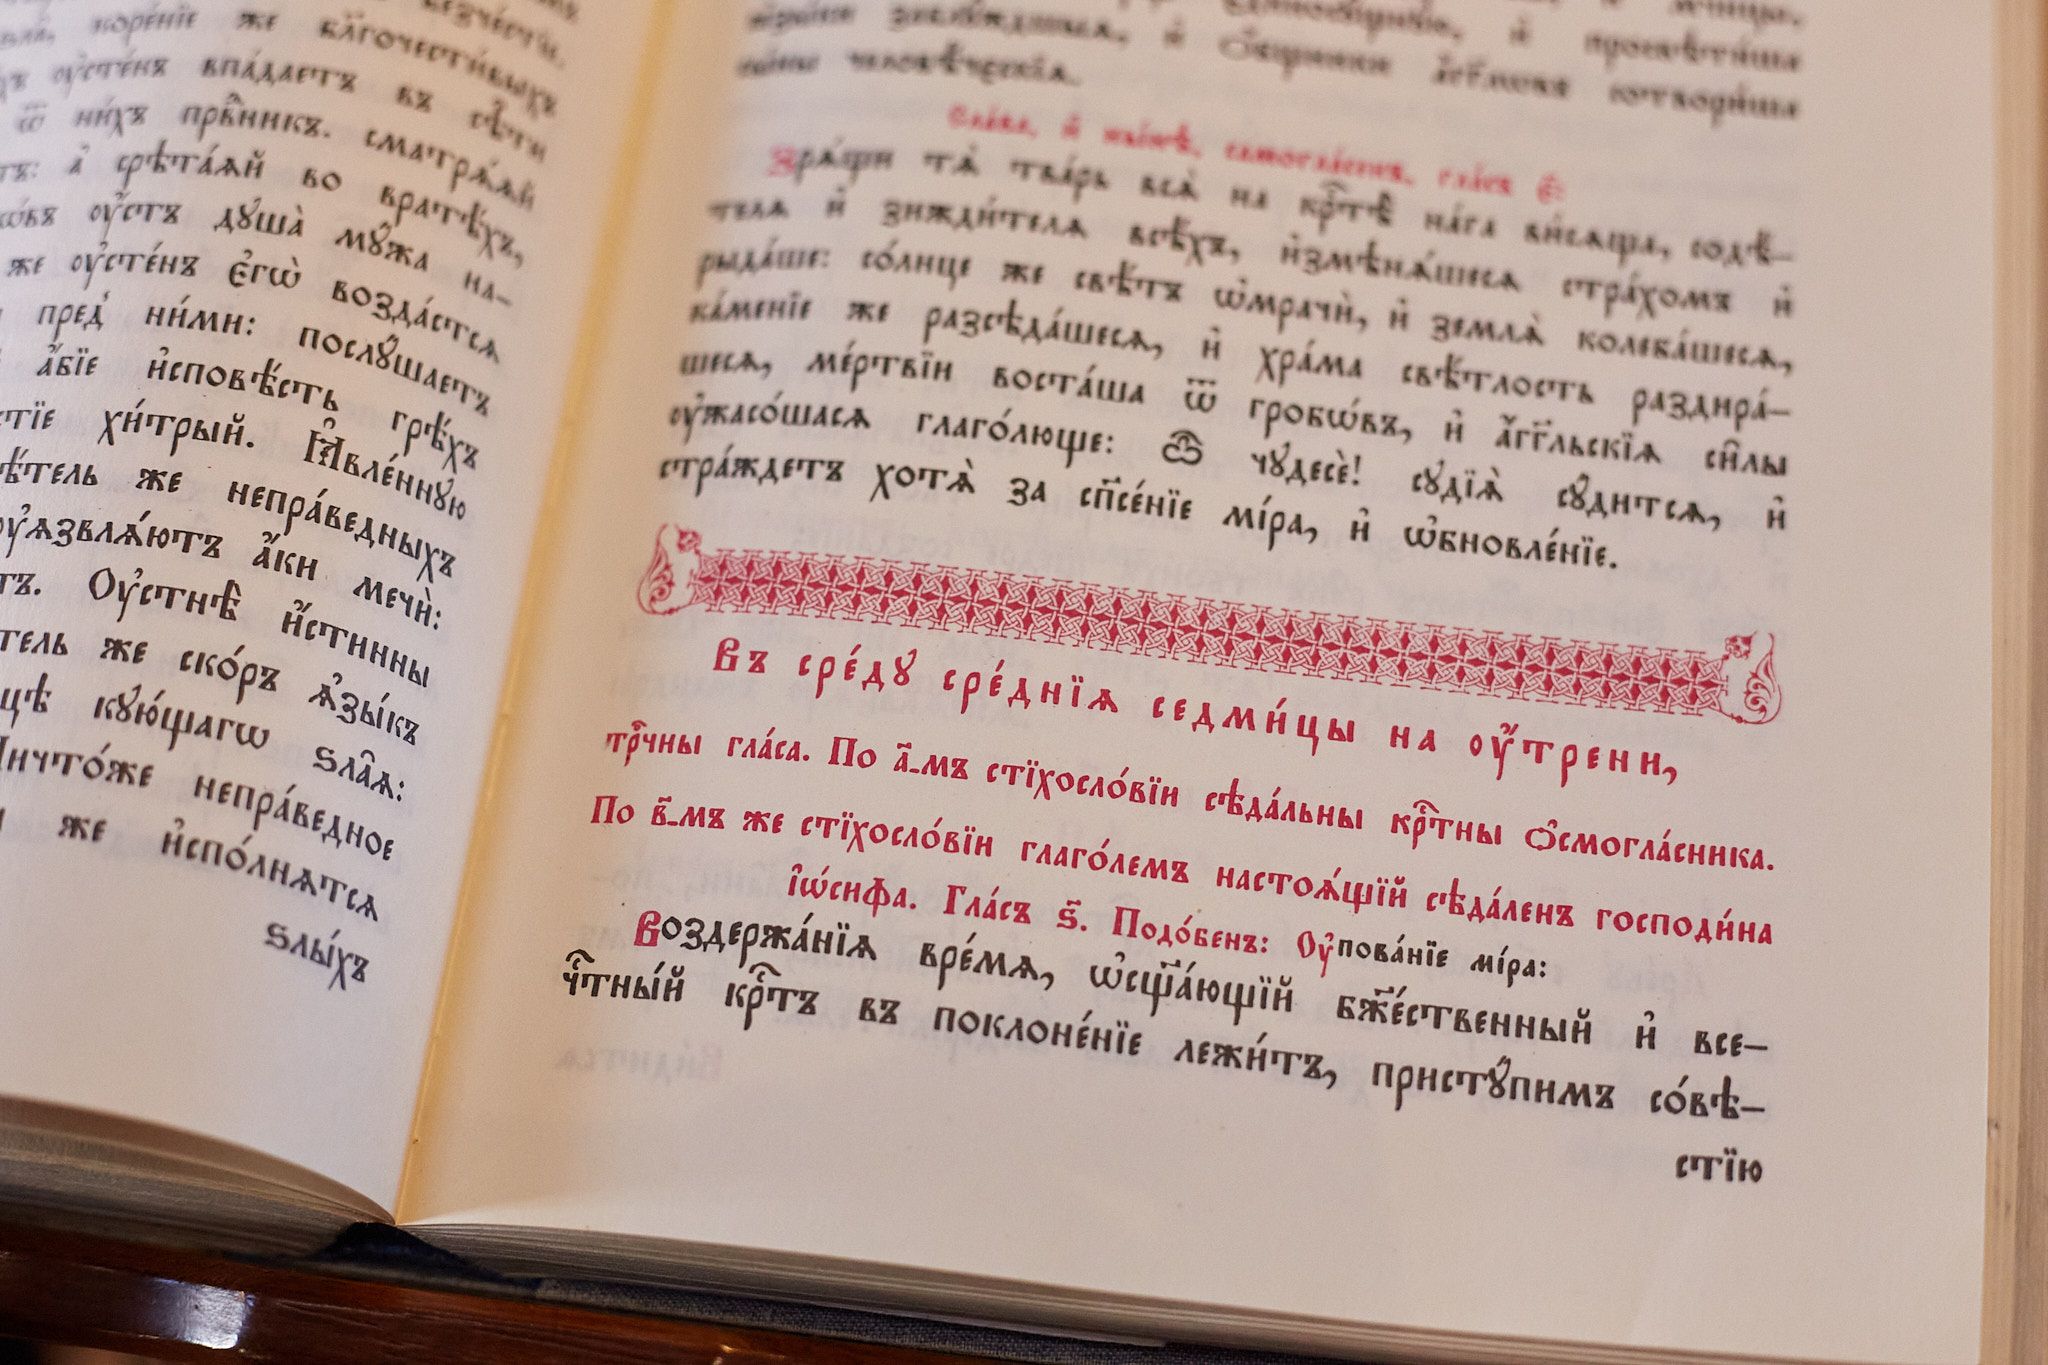 коре́нїе же бл҃гочести́выхъ
ᲂу҆сте́нъ впа́даетъ въ сѣ̑ти
ѿ ни́хъ првⷣникъ. сматрѧ́ѧй
а҆ срѣта́ѧй во вратѣ́хъ,
ᲂу҆́стъ дꙋша̀ мꙋ́жа на-
же ᲂу҆сте́нъ є҆гѡ̀ возда́стсѧ
пред̾ ни́ми: послꙋ́шаетъ
а҆́бїе и҆сповѣ́сть грѣ́хъ
хи́трый. Ꙗ҆вле́ннꙋю
же непра́ведныхъ
ᲂу҆ѧзвлѧ́ютъ а҆́ки мечѝ:
Оу҆стнѣ̀ и҆́стинны
же ско́ръ ѧ҆зы́къ
кꙋю́щагѡ ѕла̑ѧ:
Ничто́же непра́ведное
же и҆спо́лнѧтсѧ
ѕлы́хъ
сы́ны человѣ́ческїѧ.
Сла́ва, и҆ ны́нѣ, самогла́сенъ, гла́съ є҃:
Зрѧ́щи тѧ̀ тва́рь всѧ̀ на крⷭ҇тѣ̀ на́га ви́сѧща, содѣ́-
телѧ и҆ зижди́телѧ всѣ́хъ, и҆змѣнѧ́шесѧ стра́хомъ и҆
рыда́ше: со́лнце же свѣ́тъ ѡ҆мрачѝ, и҆ землѧ̀ колеба́шесѧ,
ка́менїе же разсѣда́шесѧ, и҆ хра́ма свѣ́тлость раздира́-
шесѧ, ме́ртвїи воста́ша ѿ гробѡ́въ, и҆ а҆́гг҃льскїѧ си̑лы
ᲂу҆жасо́шасѧ глаго́люще: ѽ чꙋдесѐ! сꙋдїѧ̀ сꙋ́дитсѧ, и҆
стра́ждетъ хотѧ̀ за сп҃се́нїе мі́ра, и҆ ѡ҆бновле́нїе.
Въ сре́дꙋ сре́днїѧ седми́цы на ᲂу҆́трени,
трⷪ҇чны гла́са. По а҃-мъ стїхосло́вїи сѣда́льны крⷭ҇тны ѻ҆смогла́сника.
По в҃-мъ же стїхосло́вїи глаго́лемъ настоѧ́щїй сѣда́ленъ господи́на
і҆ѡ́сифа. Гла́съ ѕ҃. Подо́бенъ: Оу҆пова́нїе мі́ра:
Воздержа́нїѧ вре́мѧ, ѡ҆сщ҃а́ющїй бж҃е́ственный и҆ все-
чⷭ҇тны́й крⷭ҇тъ въ поклоне́нїе лежи́тъ, пристꙋ́пимъ со́вѣ-
стїю